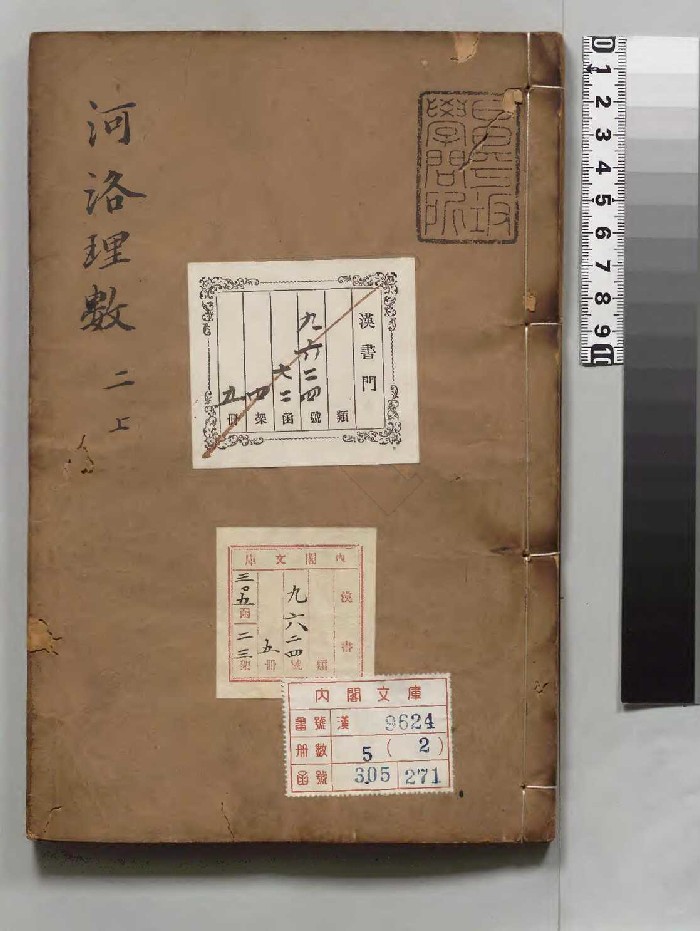 河洛理數
二上
昌平坂
學問所
漢書門
類
九六二四號
七二函
四架
五冊
內閣文庫
漢書
類
九六二四號
五冊
三〇五函
二三架
內閣文庫
番號 漢 9624
冊數 5 (2)
函號 305 271
0 1 2 3 4 5 6 7 8 9 10